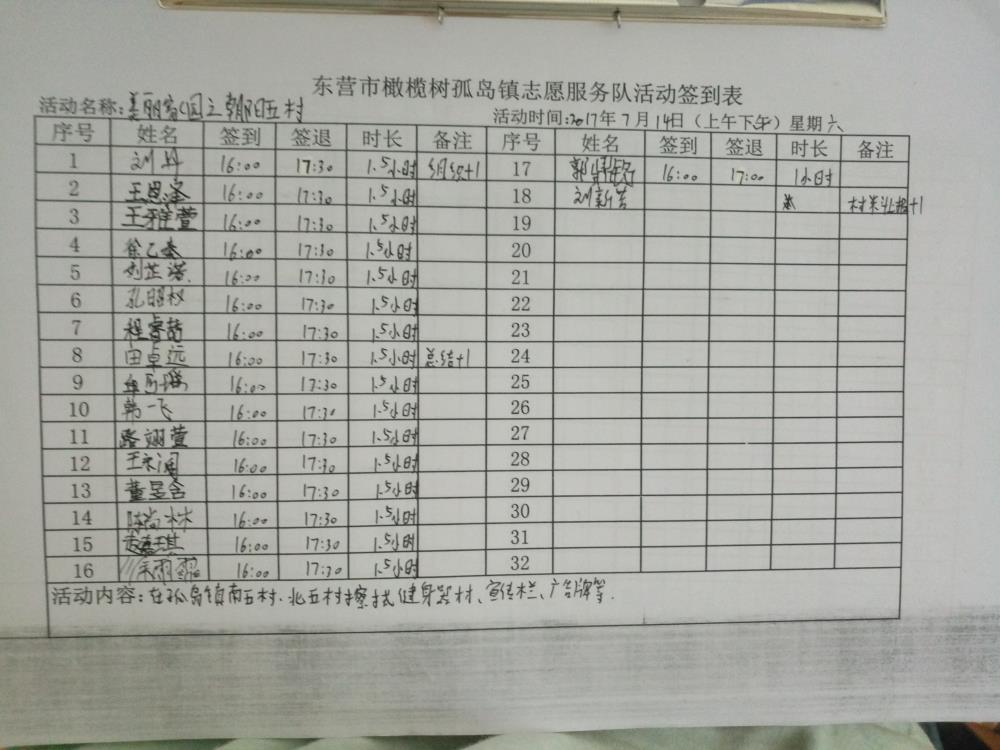 东营市橄榄树孤岛镇志愿服务队活动签到表
活动名称:美丽家园之朝阳五村
活动时间:2017年7月14日(上午下午)星期六
序号 姓名 签到 签退 时长 备注 序号 姓名 签到 签退 时长 备注
1 刘丹 16:00 17:30 1.5小时 组织+1 17 郭 16:00 17:00 1小时
2 王恩泽 16:00 17:30 1.5小时 18 刘新 +1
3 王雅萱 16:00 17:30 1.5小时 19
4 徐乙 16:00 17:30 1.5小时 20
5 刘芷诺 16:00 17:30 1.5小时 21
6 孔昭权 16:00 17:30 1.5小时 22
7 程睿喆 16:00 17:30 1.5小时 23
8 田卓远 16:00 17:30 1.5小时 总结+1 24
9 16:00 17:30 1.5小时 25
10 韩一飞 16:00 17:30 1.5小时 26
11 路翊萱 16:00 17:30 1.5小时 27
12 王 16:00 17:30 1.5小时 28
13 董昱含 16:00 17:30 1.5小时 29
14 陈尚林 16:00 17:30 1.5小时 30
15 琪 16:00 17:30 1.5小时 31
16 雨 16:00 17:30 1.5小时 32
活动内容:在孤岛镇南五村、北五村擦拭健身器材、宣传栏、广告牌等.